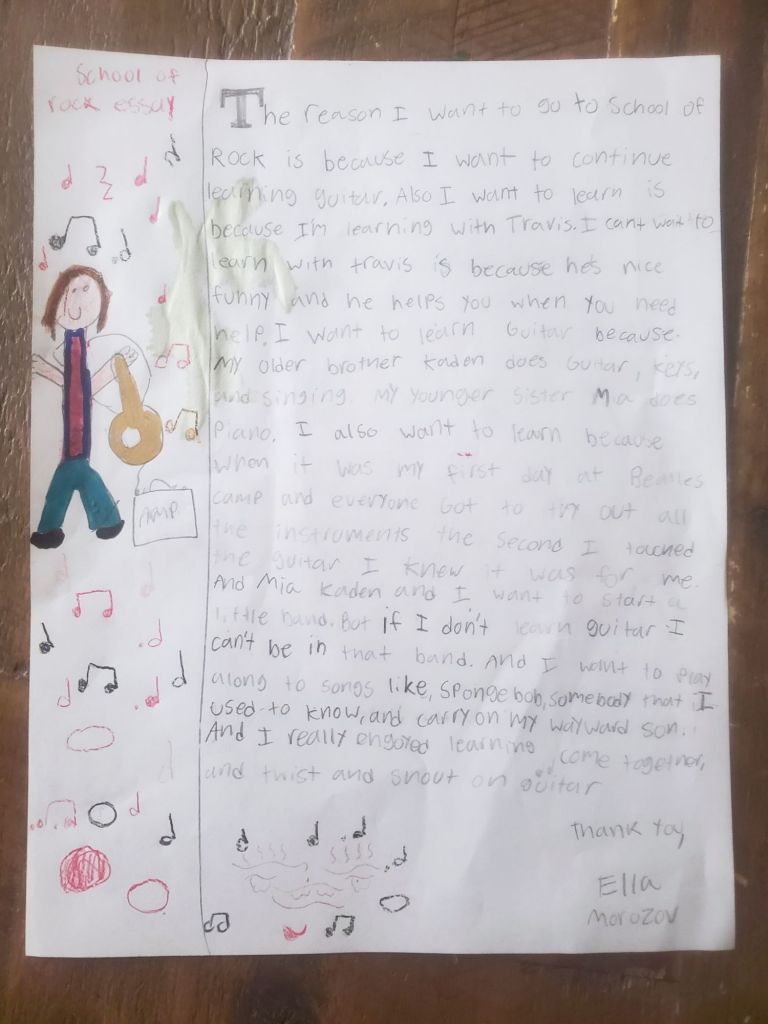 School of
rock essay
The reason I want to go to School of
Rock is because I want to continue
learning guitar. Also I want to learn is
because I'm learning with Travis. I cant wait to
learn with travis is because he's nice
funny and he helps you when you need
help. I want to learn Guitar because.
My older brother Kaden does Guitar, keys,
and singing. My younger sister Mia does
Piano. I also want to learn because
when it was my first day at Beatles
camp and everyone Got to try out all
the instruments the second I touched
the guitar I knew it was for me.
And Mia Kaden and I want to start a
little band. But if I don't learn guitar I
can't be in that band. And I want to play
along to songs like, Sponge bob, somebody that I
used to know, and carry on my wayward son.
And I really engoyed learning come together,
and twist and shout on guitar
Amp
Thank You,
Ella
Morozov